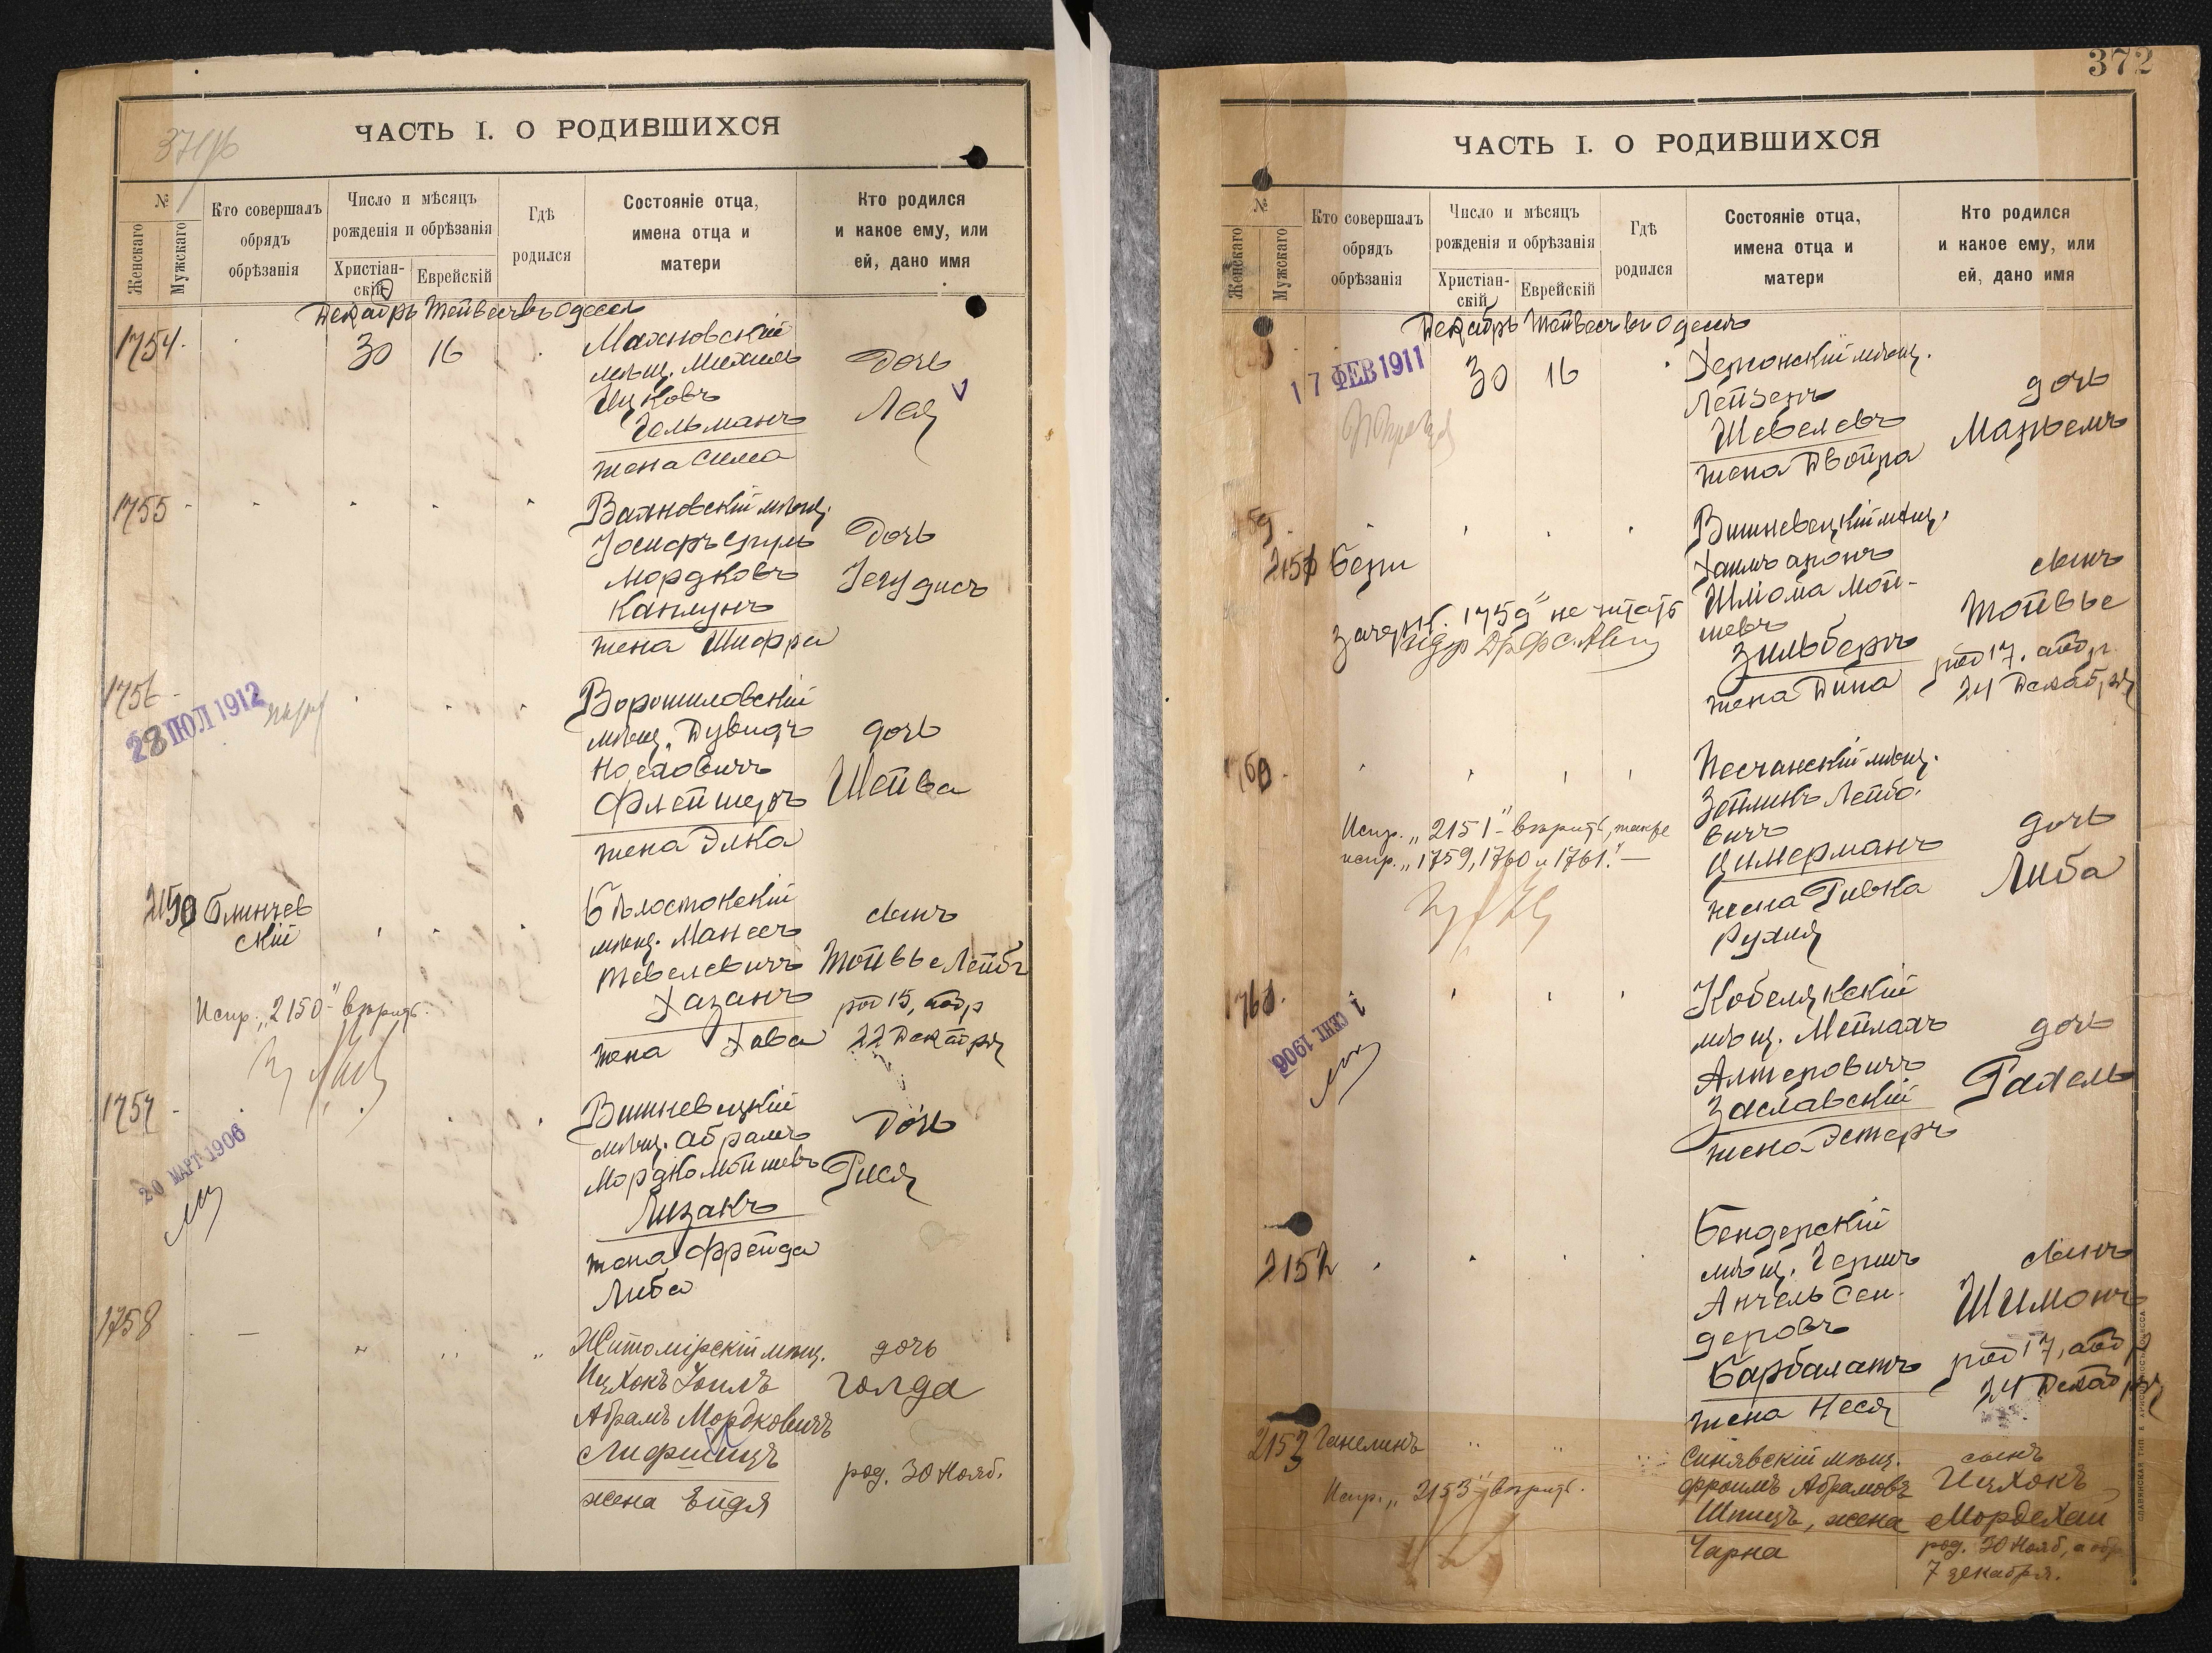 ЧАСТЬ I. О РОДИВШИХСЯ
№
Женскаго
Мужскаго
Кто совершалъ
обрядъ
обрѣзанія
Число и мѣсяцъ
рожденія и обрѣзанія
Христіан-
скій
Еврейскій
Гдѣ
родился
Состояніе отца,
имена отца и
матери
Кто родился
и какое ему, или
ей, дано имя
Декабрь Тейвесъ въ Одессѣ
1754.
30 16
Махновскій
мѣщ. Михель
Ицковъ
Гельманъ
жена Сима
Дочь
Лея
1755
Вахновскій мѣщ.
Іосифъ Сруль
Мордковъ
Каплунъ
жена Шифра
Дочь
Іегудисъ
1756
28 ІЮЛ 1912
Ворошиловскій
мѣщ. Дувидъ
Носховичъ
Флейшеръ
жена Элка
дочь
Шейва
2150 Блинчев
скій
Бѣлостокскій
мѣщ. Манесъ
Тевелевичъ
Хазанъ
жена Хава
сынъ
Тойвье Лейбъ
род 15, а обр
22 Декабря
Испр. „2150" вѣрить.
1757
20 МАРТ 1906
Вишневецкій
мѣщ. Абрамъ
Мордко Мойшевъ
Лизакъ
жена Фрейда
Либа
Дочь
Рися
1758
Житомірскій мѣщ.
Ицхокъ Іоилъ
Абрамъ Мордковичъ
Лифшицъ
жена Ейдя
дочь
Голда
род. 30 Нояб.
372
ЧАСТЬ I. О РОДИВШИХСЯ
№
Женскаго
Мужскаго
Кто совершалъ
обрядъ
обрѣзанія
Число и мѣсяцъ
рожденія и обрѣзанія
Христіан-
скій
Еврейскій
Гдѣ
родился
Состояніе отца,
имена отца и
матери
Кто родился
и какое ему, или
ей, дано имя
Декабрь Тейвесъ въ Одессѣ
17 ФЕВ 1911
30 16
Херсонскій мѣщ.
Лейзеръ
Шевелевъ
жена Двойра
дочь
Марьемъ
59.
2151 Бери
Вишневецкій мѣщ.
Хаимъ Аронъ
Шліома Мой-
шевъ
Зильберъ
жена Дина
сынъ
Тойвье
род 17, а обр.
24 Декабря
Зачеркн. „1759" не читать
1760.
Песчанскій мѣщ.
Зейликъ Лейбо-
вичъ
Цимерманъ
жена Ривка
Рухля
дочь
Либа
Испр. „2151" вѣрить, также
испр. „1759, 1760 и 1761."
1761.
1 СЕНТ 1906
Кобелякскій
мѣщ. Мейлахъ
Алтеровичъ
Заславскій
жена Эстеръ
дочь
Рахель
2152
Бендерскій
мѣщ. Гершъ
Анчель Сен-
деровъ
Барбалатъ
жена Неся
сынъ
Шимонъ
род 17, а обр
24 Декабря
2153 Ганелинъ
Синявскій мѣщ.
Фроимъ Абрамовъ
Шпицъ, жена
Чарна
сынъ
Ицхокъ
Мордехай
род. 30 Нояб, а обр
7 декабря.
Испр. „2153" вѣрить.